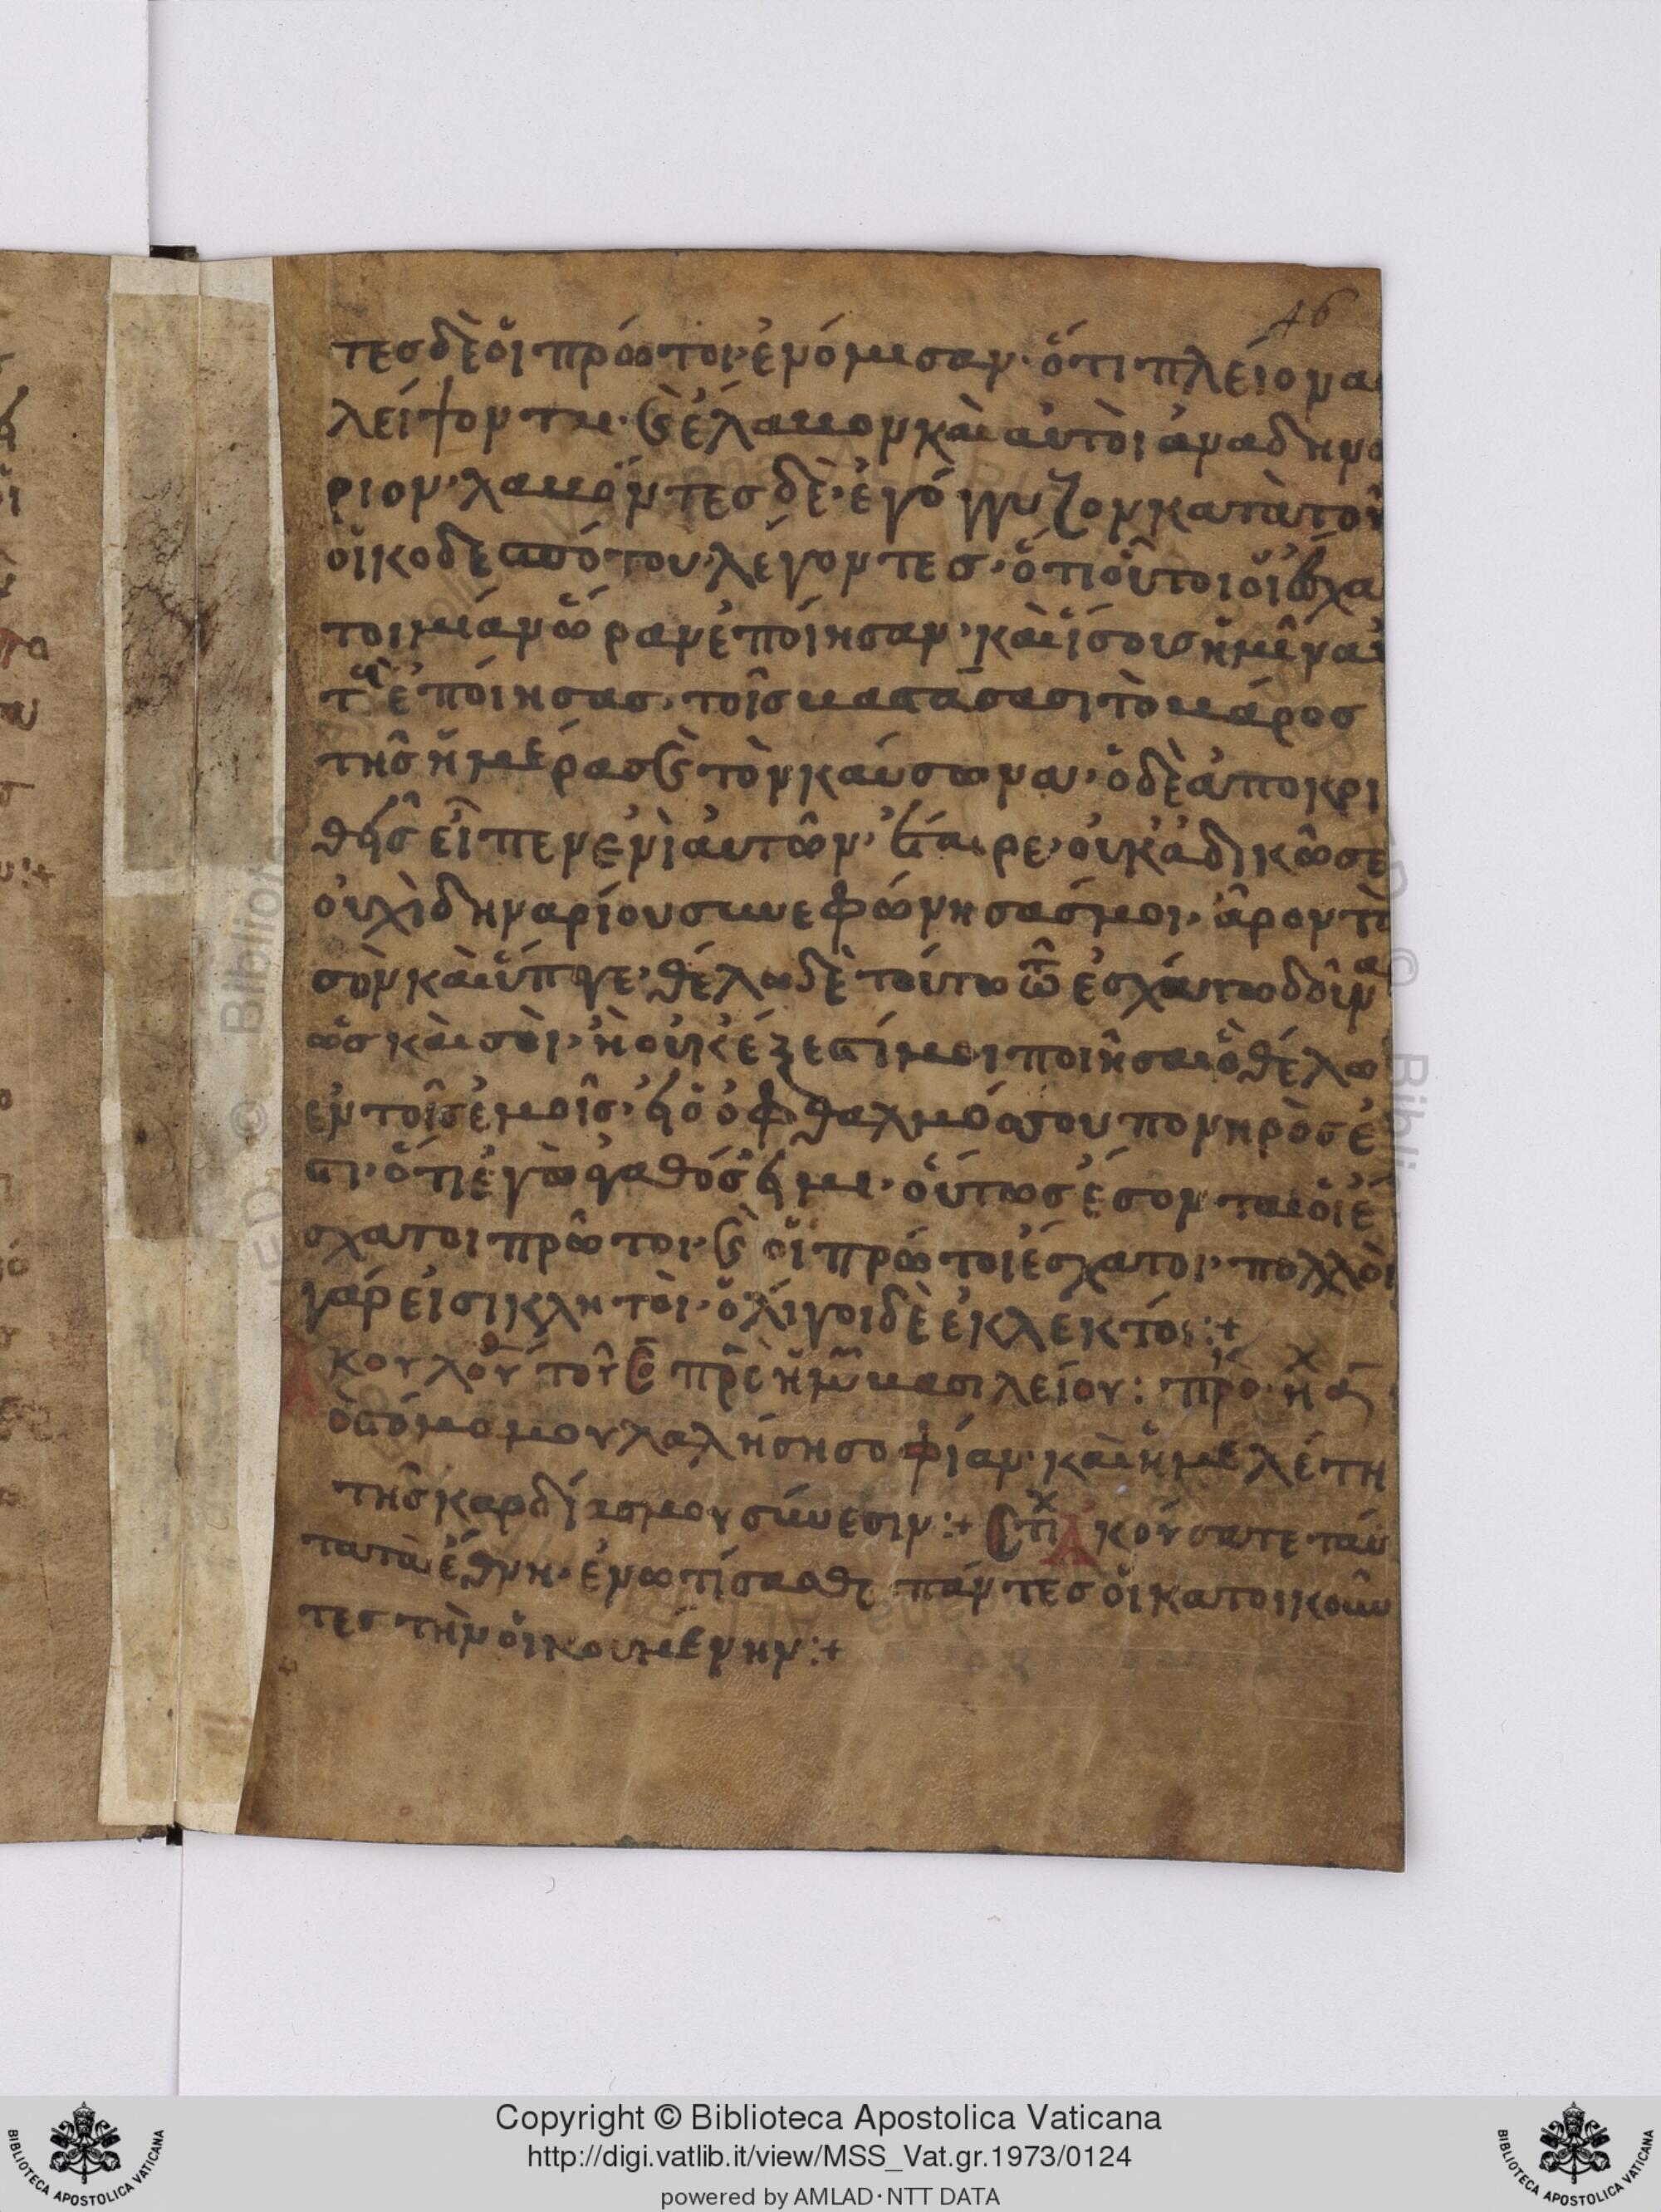 46
τες δὲ οἱ πρῶτοι· ἐνόμισαν· ὅτι πλείονα
λείψονται· καὶ ἔλαβον καὶ αὐτοὶ ἀνα δηνά
ριον· λαβόντες δὲ· ἐγόγγυζον κατὰ τοῦ
οἰκοδεσπότου λέγοντες· ὅτι οὗτοι οἱ ἔσχα
τοι μίαν ὥραν ἐποίησαν· καὶ ἴσους ἡμῖν αὐ
τοὺς ἐποίησας· τοῖς βαστάσασι τὸ βάρος
τῆς ἡμέρας καὶ τὸν καύσωνα· ὁ δὲ ἀποκρι
θεὶς εἶπεν ἐνὶ αὐτῶν· ἑταῖρε· οὐκ ἀδικῶ σε
οὐχὶ δηναρίου συνεφώνησάς μοι· ἆρον τὸ
σὸν καὶ ὕπαγε· θέλω δὲ τούτω τῶ ἐσχάτω δοῦνα
ὡς καὶ σοὶ· ἢ οὐκ ἔξεστί μοι ποιῆσαι ὃ θέλω
ἐν τοῖς ἐμοῖς· εἰ ὁ ὀφθαλμός σου πονηρὸς ἐ
στι· ὅτι ἐγὼ ἀγαθός εἰμι· οὕτως ἔσονται οἱ ἔ
σχατοι πρῶτοι· καὶ οἱ πρῶτοι ἔσχατοι· πολλοὶ
γάρ εἰσι κλητοὶ· ὀλίγοι δὲ ἐκλεκτοί:+
Ἀκουλουθ τοῦ ἐν πρς ἡμῶν βασιλείου: προκ ηχ α
τὸ στόμα μου λαλήση σοφίαν· καὶ ἡ μελέτη
τῆς καρδίας μου σύνεσιν:+ Στιχ Ἀκούσατε ταῦ
τα τὰ ἔθνη· ἐνωτίσασθε πάντες οἱ κατοικοῦν
τες τὴν οἰκουμένην:+
Copyright © Biblioteca Apostolica Vaticana
http://digi.vatlib.it/view/MSS_Vat.gr.1973/0124
powered by AMLAD·NTT DATA
BIBLIOTECA APOSTOLICA VATICANA
BIBLIOTECA APOSTOLICA VATICANA